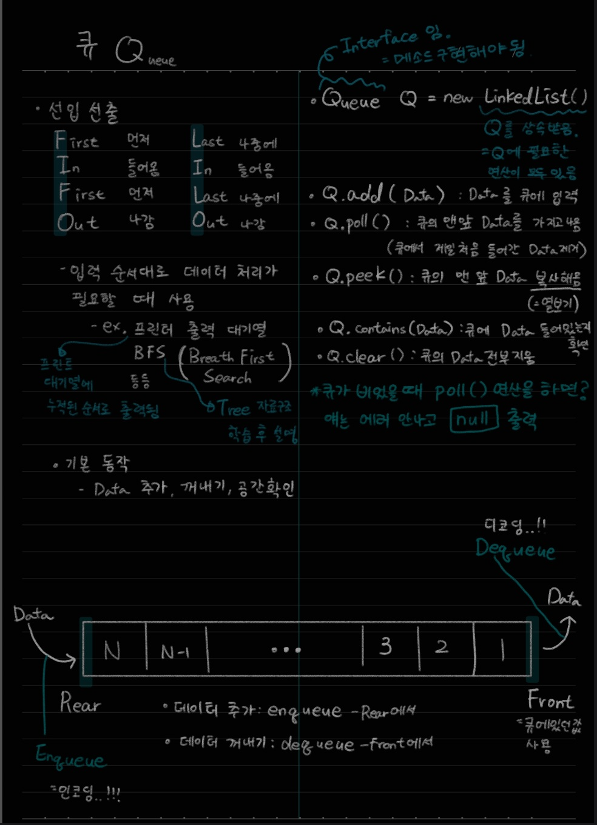 큐 Queue
• 선입 선출
First 먼저
In 들어옴
First 먼저
Out 나감
Last 나중에
In 들어옴
Last 나중에
Out 나감
- 입력 순서대로 데이터 처리가
필요할 때 사용
- ex. 프린터 출력 대기열
BFS (Breath First
Search)
등등
프린트
대기열에
누적된 순서로 출력됨
→ Tree 자료구조
학습 후 설명
• 기본 동작
- Data 추가, 꺼내기, 공간확인
Interface 임.
= 메소드 구현해야 됨
• Queue Q = new LinkedList()
Q를 상속받음.
= Q에 필요한
연산이 모두 있음
• Q.add(Data) : Data를 큐에 입력
• Q.poll() : 큐의 맨앞 Data를 가지고 나옴
(큐에서 제일처음 들어간 Data제거)
• Q.peek() : 큐의 맨 앞 Data 복사해옴
(=엿보기)
• Q.contains(Data) : 큐에 Data 들어있는지
확인
• Q.clear() : 큐의 Data 전부지움
*큐가 비었을 때 poll() 연산을 하면?
얘는 에러 안나고 null 출력
디코딩..!!
Dequeue
Data
Data
N N-1 ... 3 2 1
Rear
Front
=큐에있던값
사용
• 데이터 추가: enqueue -Rear에서
• 데이터 꺼내기: dequeue -front에서
Enqueue
=인코딩..!!!